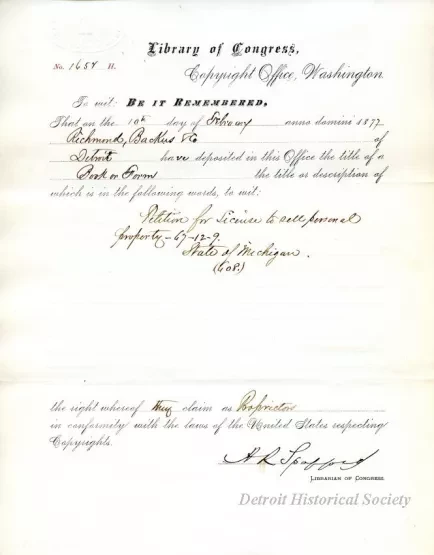 Library of Congress,
No. 1654 H.
Copyright Office, Washington
To wit: BE IT REMEMBERED,
That on the 10th day of February anno domini 1877
Richmond, Backus & Co of
Detroit have deposited in this Office the title of a
Book or Form the title or description of
which is in the following words, to wit:
Petition for License to sell personal
property – 67-12-9.
State of Michigan.
(608.)
the right whereof they claim as Proprietors
in conformity with the laws of the United States respecting
Copyrights.
A R Spofford
LIBRARIAN OF CONGRESS.
Detroit Historical Society